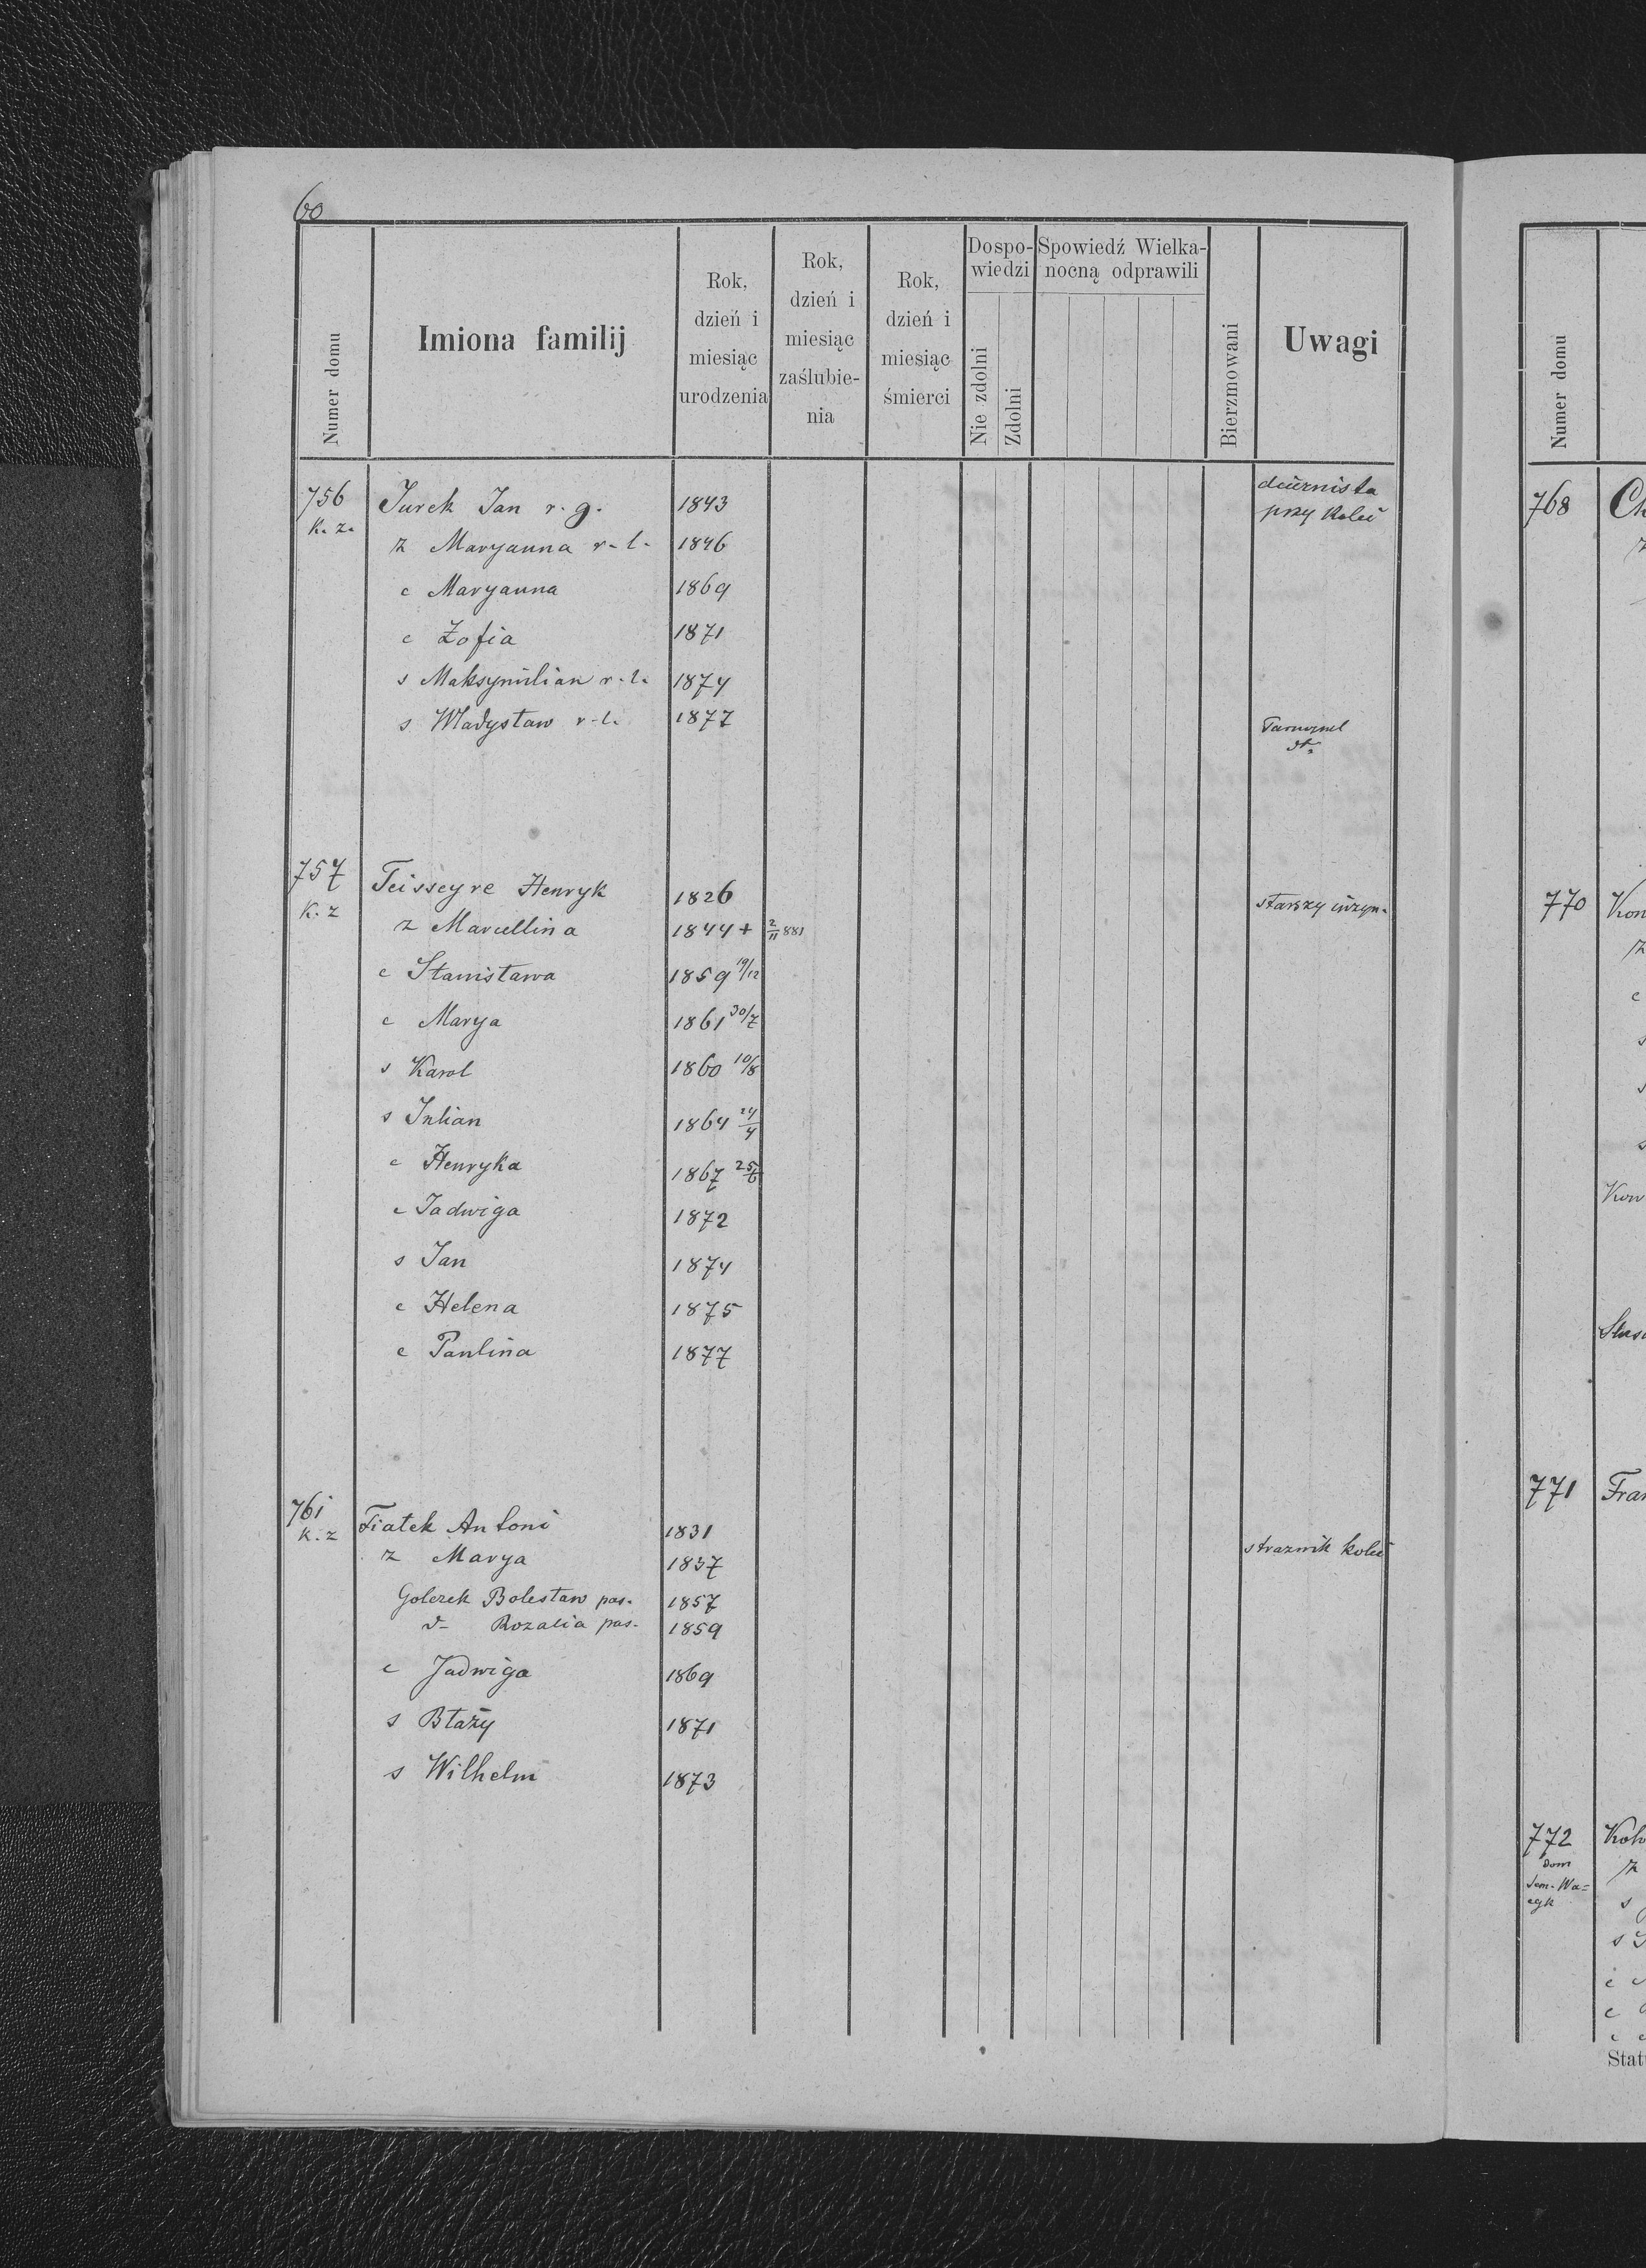 60
Numer domu
Imiona familij
Rok, dzień i miesiąc urodzenia
Rok, dzień i miesiąc zaślubie-nia
Rok, dzień i miesiąc śmierci
Dospo-wiedzi
Nie zdolni
Zdolni
Spowiedź Wielka-nocną odprawili
Bierzmowani
Uwagi
756 Jurek Jan r. g. 1843 diurnista
K. z. przy Kolei
z Maryanna r. l. 1846
c Maryanna 1869
c Zofia 1871
s Maksymilian r. l. 1874
s Władysław r. l. 1877
757 Teisseyre Henryk 1826 starszy inżyn.
K. z
z Marcellina 1844 + 2/11 881
c Stanisława 1859 19/12
c Marya 1861 30/7
s Karol 1860 10/8
s Julian 1864 24/4
c Henryka 1867 25/6
c Jadwiga 1872
s Jan 1874
c Helena 1875
c Paulina 1877
761 Fiatek Antoni 1831
K. z strażnik kolei
z Marya 1837
Golczek Bolesław pas. 1857
d- Rozalia pas. 1859
c Jadwiga 1869
s Błaży 1871
s Wilhelm 1873
Numer domu
768 Ch
z
770 Kon
z
c
s
s
s
Kow
771 Fran
772 Koh
dom
z
s
s
c
c
Stat